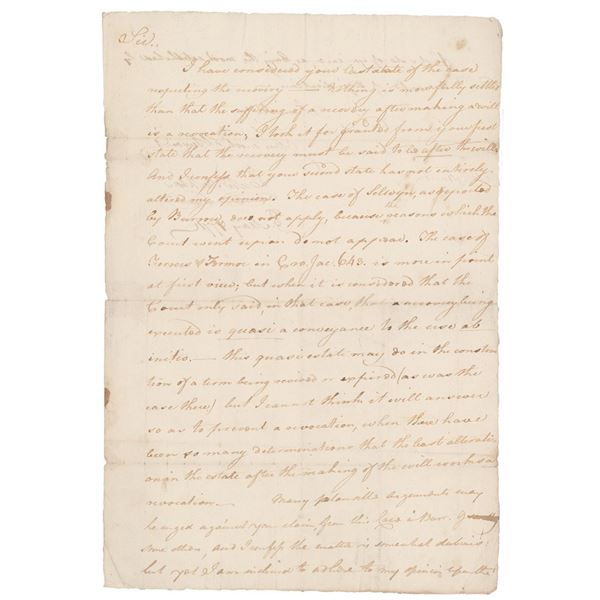 Sir,
I have considered your state of the case
respecting the recovery — Nothing is more fully settled
than that the suffering of a recovery after making a will
is a revocation; I took it for granted from your first
state that the recovery must be said to be after the will
And I confess that your second state has not entirely
altered my opinion. The case of Selwyn, as reported
by Burrow, does not apply, because reasons which the
Court went upon do not appear. The case of
& Fermor in Cro. Jac. 643. is more in point
at first view; but when it is considered that the
Court only said, in that case, that a recovery being
executed is quasi a conveyance to the use ab
initio. — this quasi estate may do in the construc
tion of a term being revived or expired (as was the
case there) but I cannot think it will answer
so as to prevent a revocation, when there have
been so many determinations that the least alterati
on in the estate after the making of the will works a
revocation. — Many plausible arguments may
be urged against your claim, from this Case in Burr.
some others, and I confess the matter is somewhat dubious
but yet I am inclined to adhere to my opinion